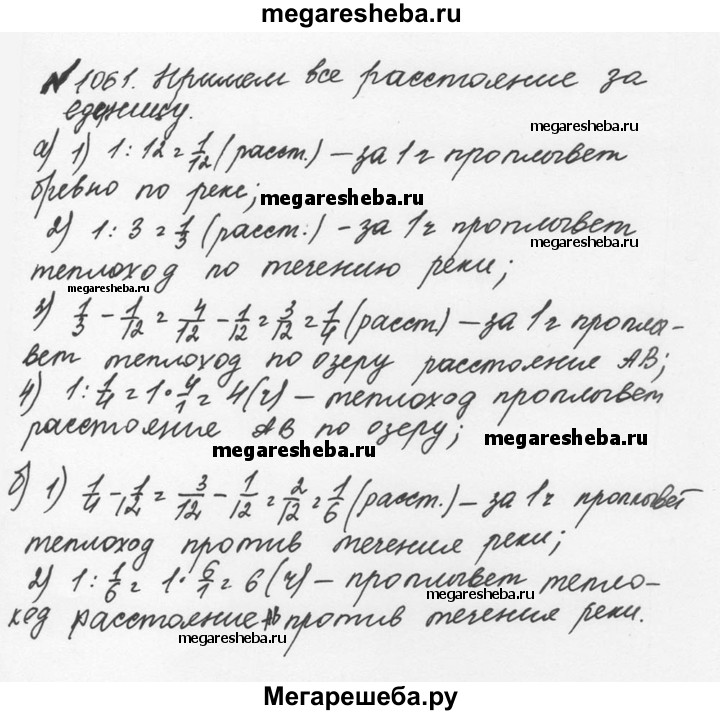 megaresheba.ru
№1061. Примем все расстояние за
еденицу.
megaresheba.ru
а) 1) 1 : 12 = 1/12 (расст.) – за 1 ч проплывет
бревно по реке;
megaresheba.ru
2) 1 : 3 = 1/3 (расст.) – за 1 ч проплывет
megaresheba.ru
теплоход по течению реки;
megaresheba.ru
3) 1/3 - 1/12 = 4/12 - 1/12 = 3/12 = 1/4 (расст) – за 1 ч проплы-
вет теплоход по озеру расстояние АВ;
4) 1 : 1/4 = 1 · 4/1 = 4 (ч) – теплоход проплывет
расстояние АВ по озеру;
megaresheba.ru
megaresheba.ru
б) 1) 1/4 - 1/12 = 3/12 - 1/12 = 2/12 = 1/6 (расст.) – за 1 ч проплывет
теплоход против течения реки;
2) 1 : 1/6 = 1 · 6/1 = 6 (ч) – проплывет тепло-
megaresheba.ru
ход расстояние АВ против течения реки.
megaresheba.ru
Мегарешеба.ру